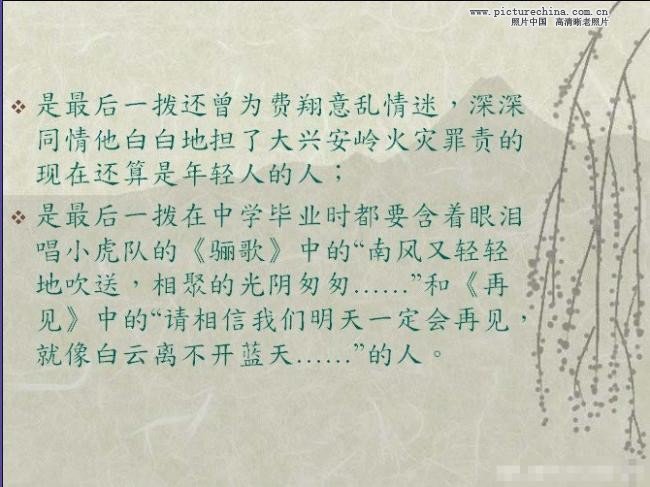 www.picturechina.com.cn
照片中国 高清晰老照片
是最后一拨还曾为费翔意乱情迷，深深
同情他白白地担了大兴安岭火灾罪责的
现在还算是年轻人的人；
是最后一拨在中学毕业时都要含着眼泪
唱小虎队的《骊歌》中的“南风又轻轻
地吹送，相聚的光阴匆匆……”和《再
见》中的“请相信我们明天一定会再见，
就像白云离不开蓝天……”的人。